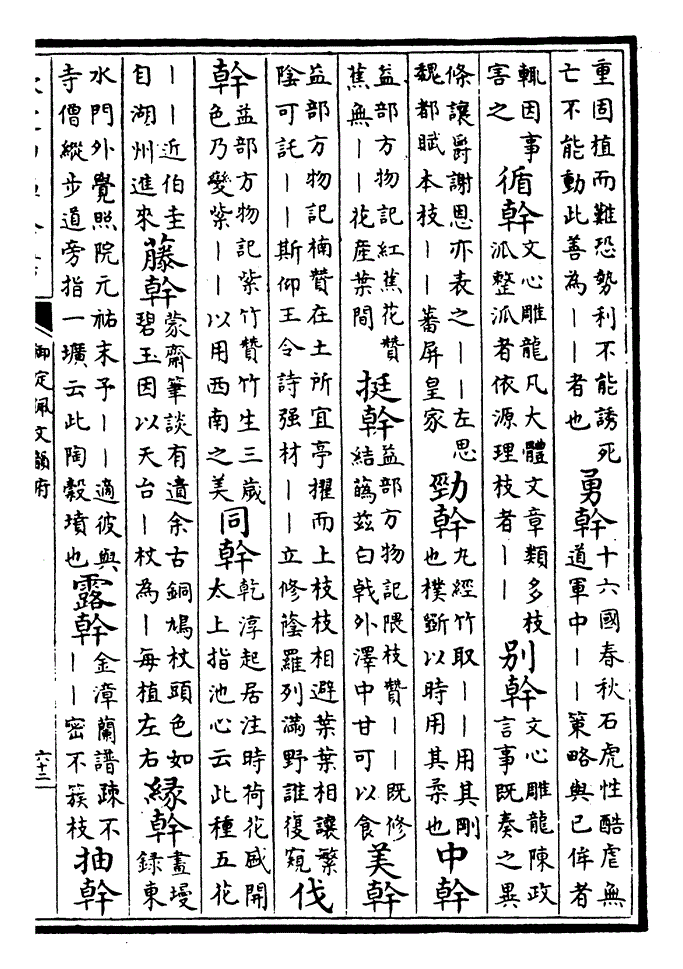 重固植而難恐勢利不能誘死
亡不能動此善為丨丨者也
勇幹
十六國春秋石虎性酷虐無
道軍中丨丨策略與已侔者
輒因事
害之
循幹
文心雕龍凡大體文章類多枝
派整派者依源理枝者丨丨
别幹
文心雕龍陳政
言事既奏之異
條讓爵謝恩亦表之丨丨左思
魏都賦本枝丨丨蕃屏皇家
勁幹
九經竹取丨丨用其剛
也樸斲以時用其柔也
中幹
益部方物記紅蕉花贊
蕉無丨丨花産葉間
挺幹
益部方物記隈枝贊丨丨既修
結蘤兹白戟外澤中甘可以食
美幹
益部方物記楠贊在土所宜亭擢而上枝枝相避葉葉相讓繁
陰可託丨丨斯仰王令詩强材丨丨立修蔭羅列滿野誰復窺
伐
幹
益部方物記紫竹贊竹生三歲
色乃變紫丨丨以用西南之美
同幹
乾淳起居注時荷花盛開
太上指池心云此種五花
丨丨近伯圭
自湖州進來
藤幹
蒙齋筆談有遺余古銅鳩杖頭色如
碧玉因以天台丨杖為丨每植左右
緣幹
畫墁
録東
水門外覺照院元祐末予丨丨適彼與
寺僧縱步道旁指一壙云此陶穀墳也
露幹
金漳蘭譜疎不
丨丨密不簇枝
抽幹
御定佩文韻府
六十二